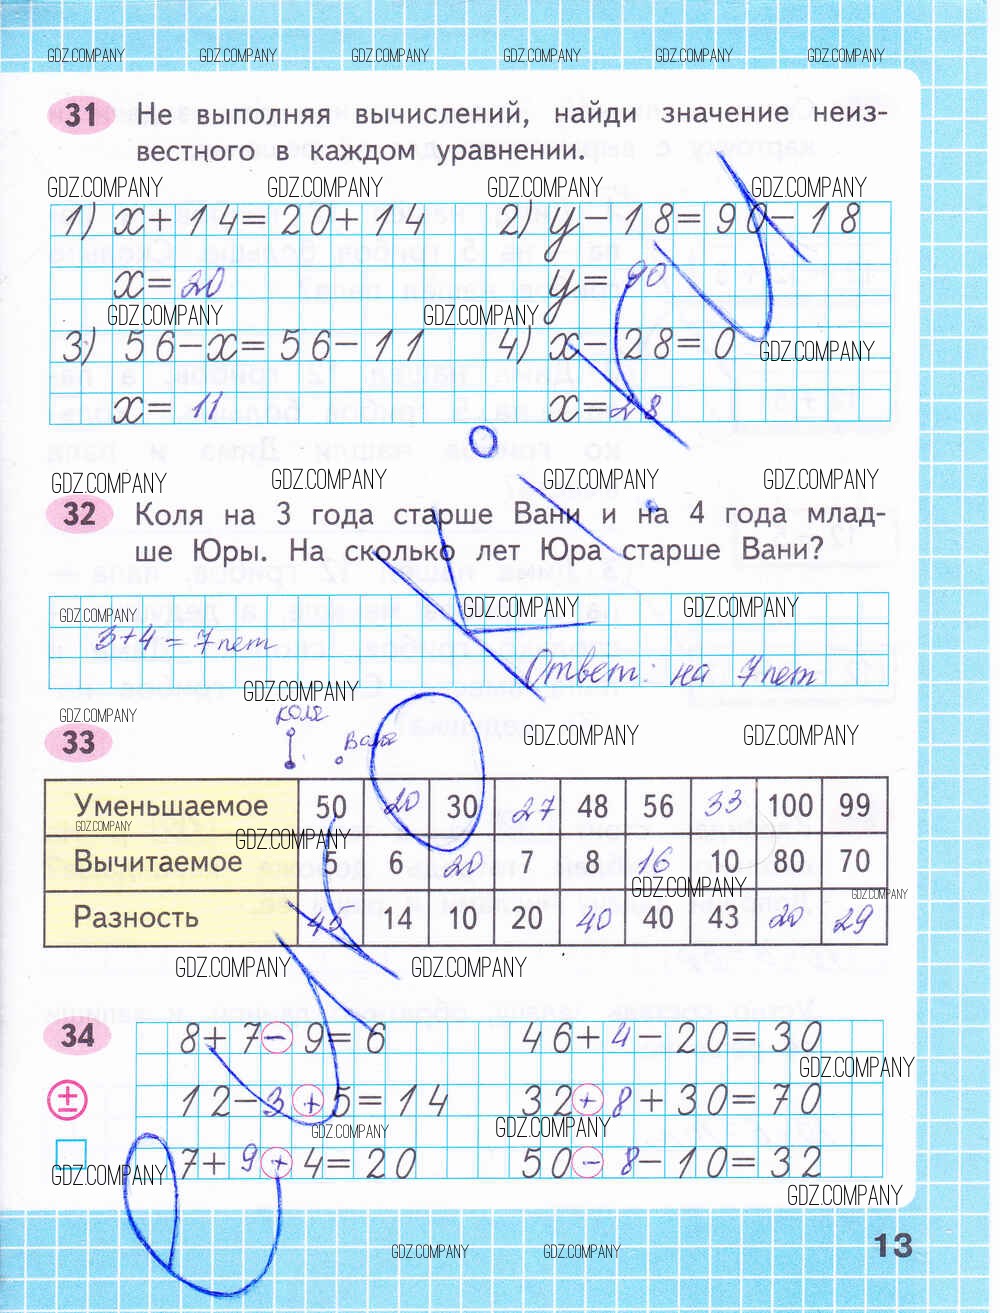 GDZ.COMPANY GDZ.COMPANY GDZ.COMPANY GDZ.COMPANY GDZ.COMPANY GDZ.COMPANY
31 Не выполняя вычислений, найди значение неиз-
вестного в каждом уравнении.
GDZ.COMPANY GDZ.COMPANY GDZ.COMPANY GDZ.COMPANY
1) x+14=20+14 2) y-18=90-18
x=20 y=90
GDZ.COMPANY GDZ.COMPANY
3) 56-x=56-11 4) x-28=0
GDZ.COMPANY
x=11 x=28
GDZ.COMPANY GDZ.COMPANY GDZ.COMPANY GDZ.COMPANY
32 Коля на 3 года старше Вани и на 4 года млад-
ше Юры. На сколько лет Юра старше Вани?
GDZ.COMPANY GDZ.COMPANY GDZ.COMPANY
3+4=7лет
Ответ: на 7лет
GDZ.COMPANY
GDZ.COMPANY коля
33 Ваня GDZ.COMPANY GDZ.COMPANY
Уменьшаемое 50 20 30 27 48 56 33 100 99
GDZ.COMPANY GDZ.COMPANY
Вычитаемое 5 6 20 7 8 16 10 80 70
GDZ.COMPANY GDZ.COMPANY
Разность 45 14 10 20 40 40 43 20 29
GDZ.COMPANY GDZ.COMPANY
34 8+7-9=6 46+4-20=30
GDZ.COMPANY
± 12-3+5=14 32+8+30=70
GDZ.COMPANY GDZ.COMPANY
7+9+4=20 50-8-10=32
GDZ.COMPANY GDZ.COMPANY
13
GDZ.COMPANY GDZ.COMPANY